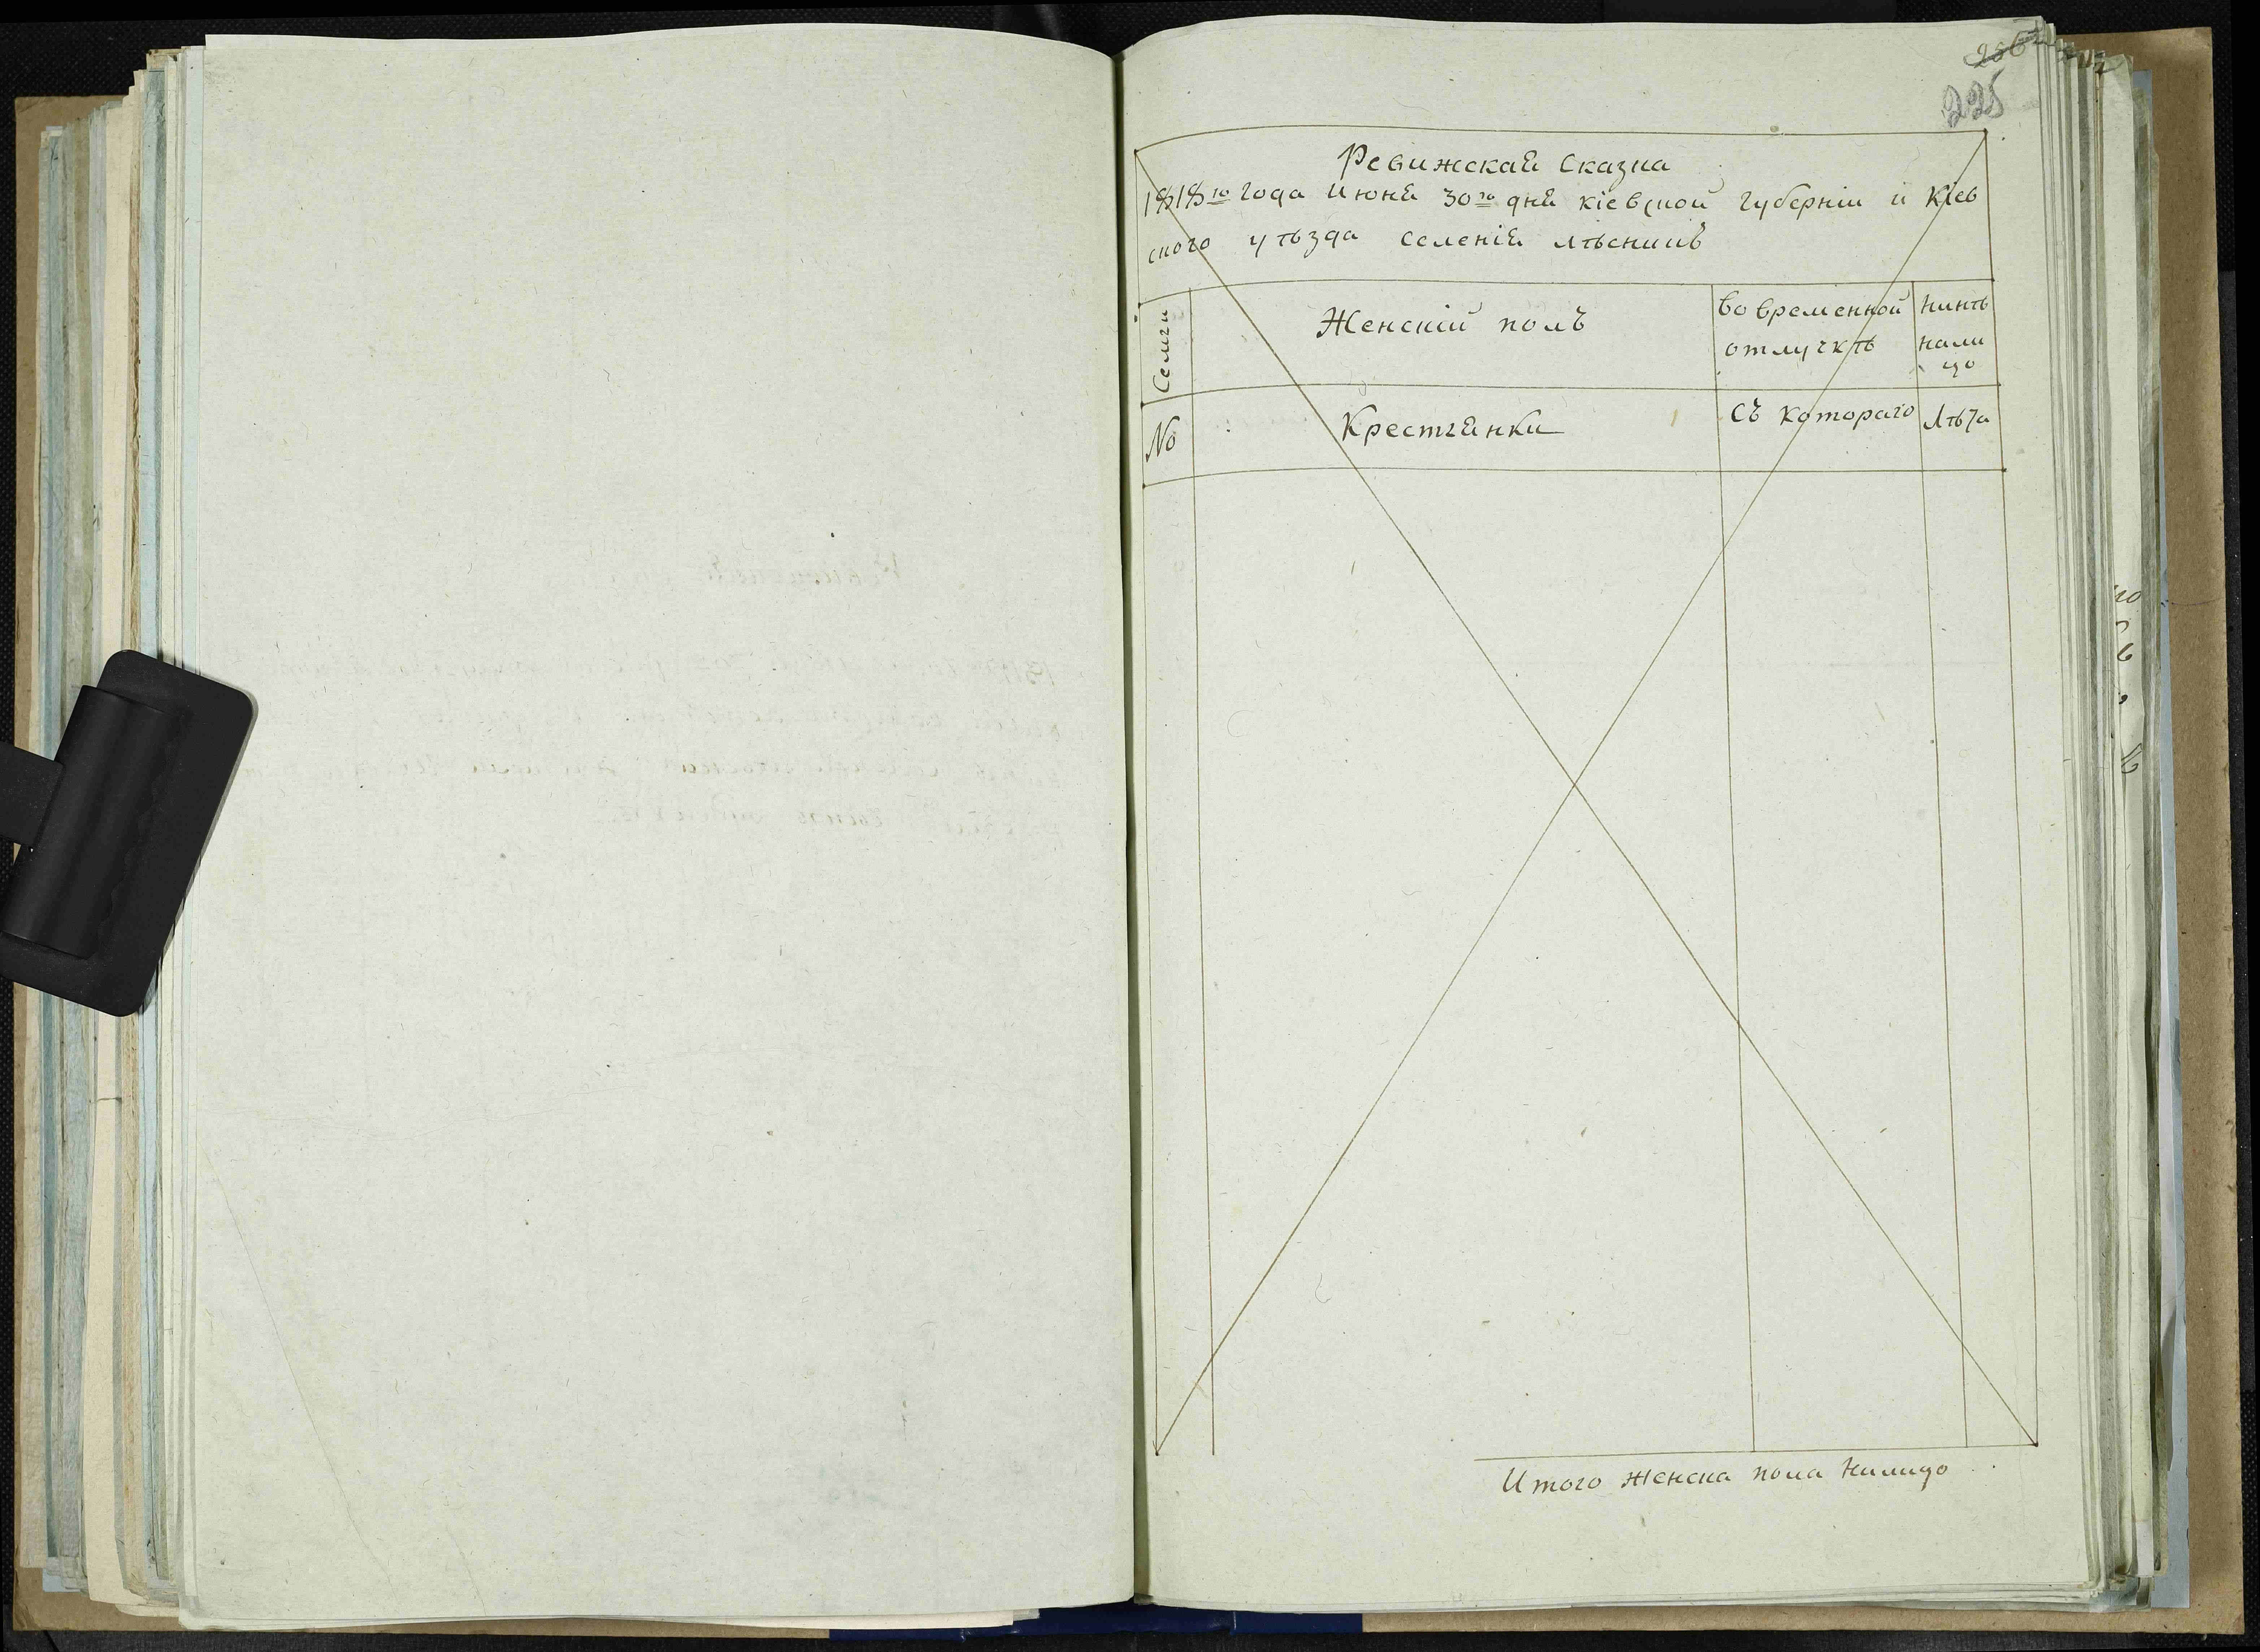 256
225
Ревижская Сказка
1818го года июня 30го дня кіевской губерніи и Кіев
ского уѣзда селенія лѣсникъ
Семьи
Женскій полъ
Во временной
отлучкѣ
Нинѣ
нали
цо
No
Крестянки
Съ котораго
Лѣта
Итого женска пола налицо